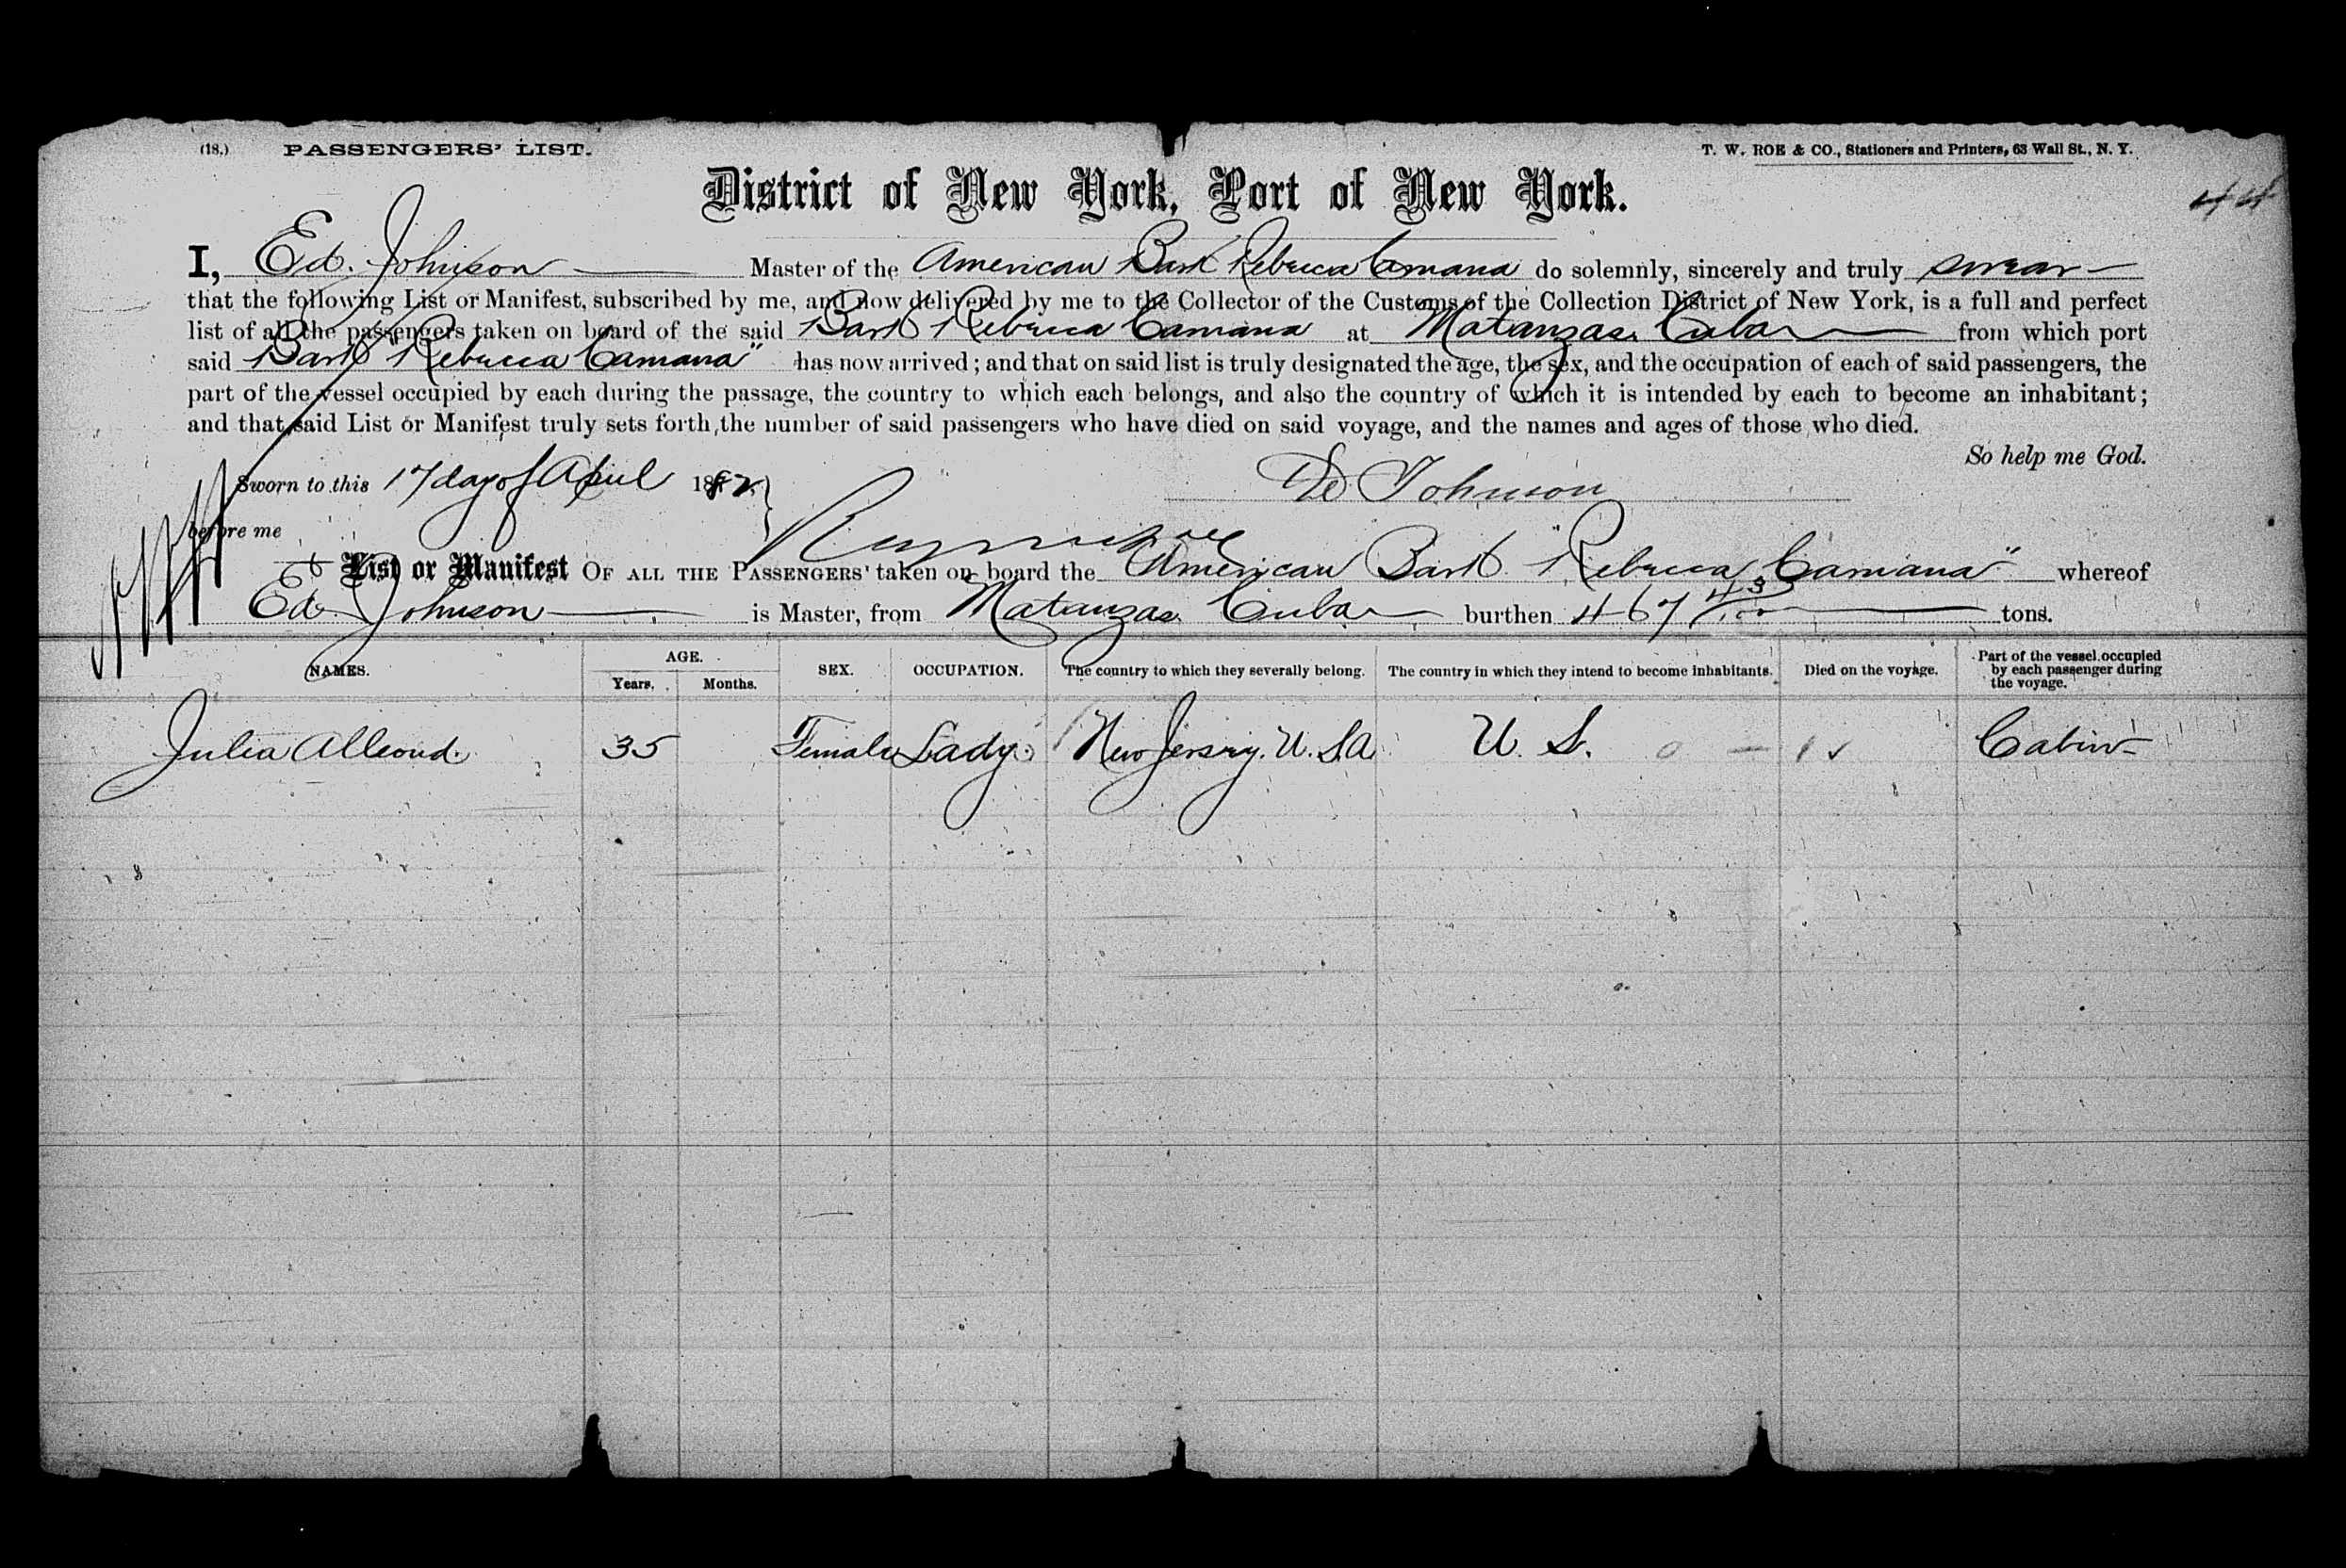 (18.) PASSENGERS' LIST.
T. W. ROE & CO., Stationers and Printers, 63 Wall St., N. Y.
District of New York, Port of New York.
44
I, Ed. Johnson Master of the American Bark Rebecca Camana do solemnly, sincerely and truly swear
that the following List or Manifest, subscribed by me, and now delivered by me to the Collector of the Customs of the Collection District of New York, is a full and perfect
list of all the passengers taken on board of the said Bark Rebecca Camana at Matanzas Cuba from which port
said Bark "Rebecca Camana" has now arrived; and that on said list is truly designated the age, the sex, and the occupation of each of said passengers, the
part of the vessel occupied by each during the passage, the country to which each belongs, and also the country of which it is intended by each to become an inhabitant;
and that said List or Manifest truly sets forth the number of said passengers who have died on said voyage, and the names and ages of those who died.
So help me God.
Sworn to this 17 day of April 1882
Ed Johnson
before me
List or Manifest OF ALL THE PASSENGERS taken on board the American Bark "Rebecca Camana" whereof
Ed. Johnson is Master, from Matanzas Cuba burthen 467 43/100 tons.
NAMES. AGE. Years. Months. SEX. OCCUPATION. The country to which they severally belong. The country in which they intend to become inhabitants. Died on the voyage. Part of the vessel occupied by each passenger during the voyage.
Julia Alleond. 35 Female Lady New Jersey. U. S. A. U. S. Cabin